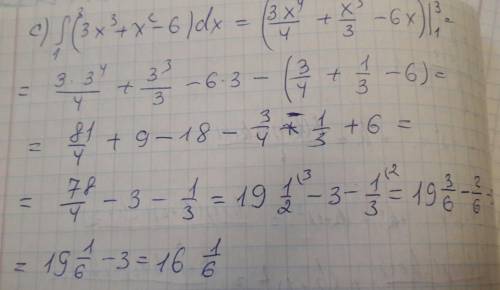 c) ∫₁³ (3x³ + x² - 6) dx = (3x⁴/4 + x³/3 - 6x)|₁³ =
= 3·3⁴/4 + 3³/3 - 6·3 - (3/4 + 1/3 - 6) =
= 81/4 + 9 - 18 - 3/4 - 1/3 + 6 =
= 78/4 - 3 - 1/3 = 19 1/2⁽³ - 3 - 1/3⁽² = 19 3/6 - 2/6 -
= 19 1/6 - 3 = 16 1/6